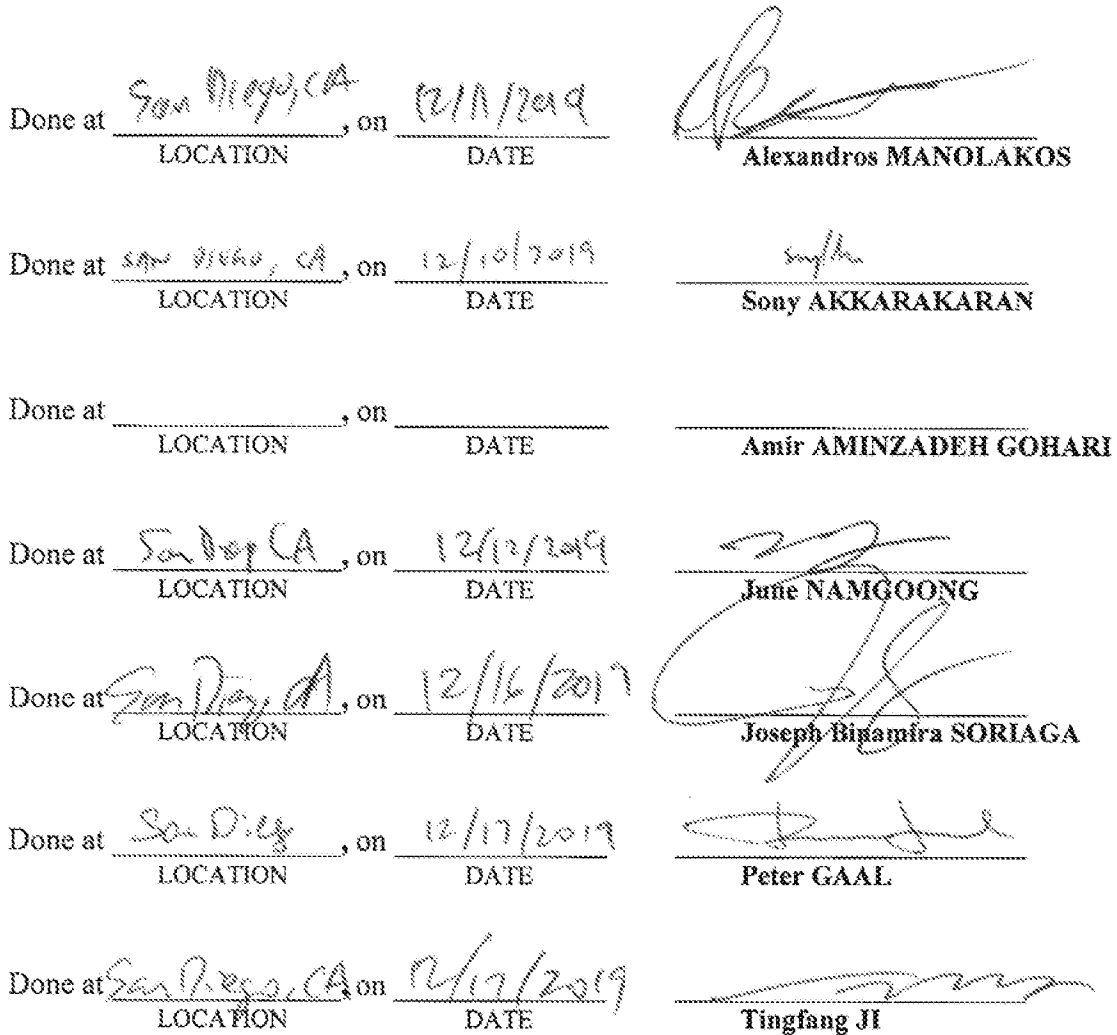 Done at San Diego, CA, on 12/11/2019
LOCATION DATE Alexandros MANOLAKOS
Done at SAN DIEGO, CA, on 12/10/2019
LOCATION DATE Sony AKKARAKARAN
Done at , on
LOCATION DATE Amir AMINZADEH GOHARI
Done at San Diego CA, on 12/12/2019
LOCATION DATE June NAMGOONG
Done at San Diego, CA, on 12/16/2019
LOCATION DATE Joseph Binamira SORIAGA
Done at San Diego, on 12/17/2019
LOCATION DATE Peter GAAL
Done at San Diego, CA, on 12/17/2019
LOCATION DATE Tingfang JI